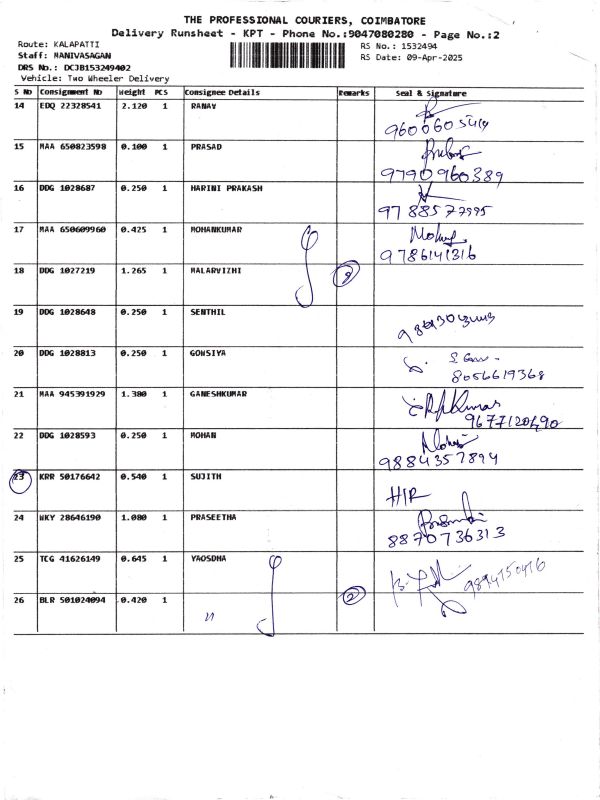 THE PROFESSIONAL COURIERS, COIMBATORE
Delivery Runsheet - KPT - Phone No.:9047080280 - Page No.:2
Route: KALAPATTI
RS No.: 1532494
Staff: MANIVASAGAN
RS Date: 09-Apr-2025
DRS No.: DCJB153249402
Vehicle: Two Wheeler Delivery
S NO Consignment No Weight PCS Consignee Details Remarks Seal & Signature
14 EDQ 22328541 2.120 1 RANAV
15 MAA 650823598 0.100 1 PRASAD
9790960389
16 DDG 1028687 0.250 1 HARINI PRAKASH
9788577995
17 MAA 650609960 0.425 1 MOHANKUMAR
9786141316
18 DDG 1027219 1.265 1 MALARVIZHI
19 DDG 1028648 0.250 1 SENTHIL
20 DDG 1028813 0.250 1 GOWSIYA
8056619368
21 MAA 945391929 1.380 1 GANESHKUMAR
9677120490
22 DDG 1028593 0.250 1 MOHAN
9884357894
23 KRR 50176642 0.540 1 SUJITH
24 WKY 28646190 1.080 1 PRASEETHA
8870736313
25 TCG 41626149 0.645 1 YAOSDHA
26 BLR 501024094 0.420 1 2